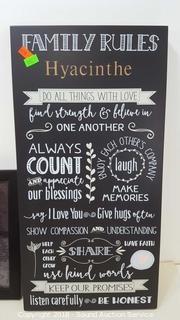 FAMILY RULES
Hyacinthe
DO ALL THINGS WITH LOVE
find strength & believe in
ONE ANOTHER
ALWAYS
COUNT
AND appreciate
our blessings
ENJOY EACH OTHER'S COMPANY
laugh
MAKE
MEMORIES
say I Love You Give hugs often
SHOW COMPASSION AND UNDERSTANDING
HELP
EACH
OTHER
GROW
SHARE
HAVE FAITH
use kind words
KEEP OUR PROMISES
listen carefully BE HONEST
Copyright 2018 - Sound Auction Service